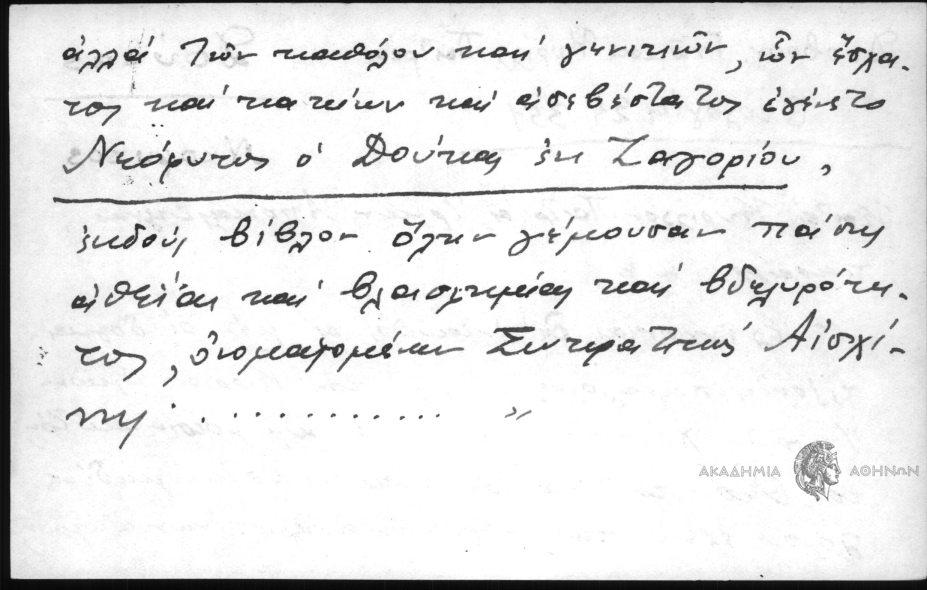 ἀλλά τῶν καθόλου καί γενικῶν, ὧν ἔσχα-
τος καί κακίων καί ἀσεβέστατος ἐγένετο
Νεόφυτος ὁ Δούκας ἐκ Ζαγορίου,
ἐκδούς βίβλον ὅλην γέμουσαν πάσης
ἀθεΐας καί βλασφημίας καί βδελυρότη-
τος, ὀνομαζομένην Σωκρατικός Αἰσχί-
νης. . . . . . . . . . . . . . »
ΑΚΑΔΗΜΙΑ ΑΘΗΝΩΝ